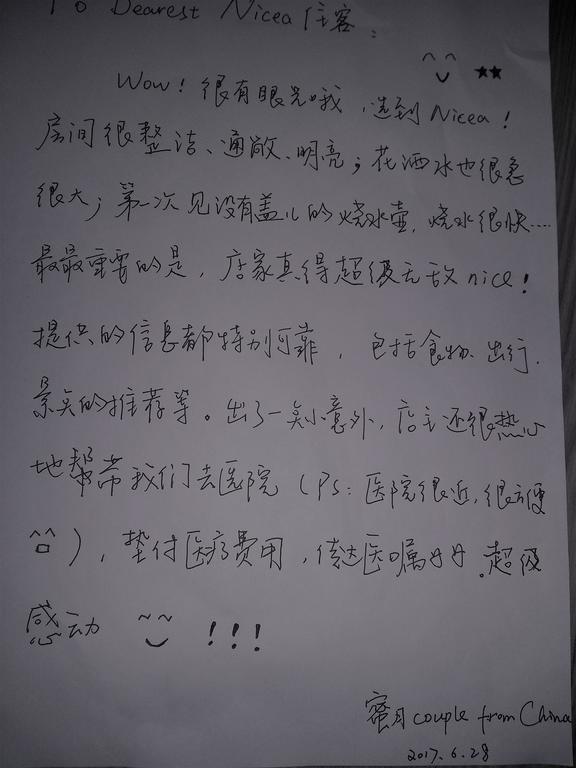 To Dearest Nicea 住客：
^^ ★★
Wow！很有眼光哦，选到Nicea！
房间很整洁、通敞、明亮；花洒水也很急
很大；第一次见没有盖儿的烧水壶，烧水很快……
最最重要的是，店家真得超级无敌nice！
提供的信息都特别可靠，包括食物、出行、
景点的推荐等。出了一点小意外，店主还很热心
地帮带我们去医院（PS：医院很近，很方便
^^），垫付医疗费用，传达医嘱，超级
感动 ~~ !!!
蜜月couple from China
2017.6.28